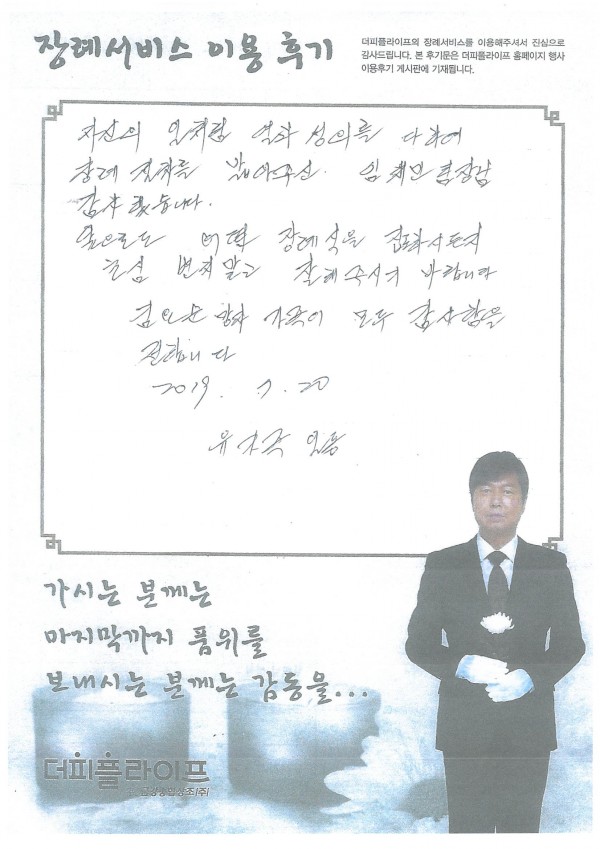 장례서비스 이용 후기
더피플라이프의 장례서비스를 이용해주셔서 진심으로
감사드립니다. 본 후기문은 더피플라이프 홈페이지 행사
이용후기 게시판에 기재됩니다.
자신의 일처럼 열과 성의를 다하여
장례 절차를 밟아주신 임 팀장님
감사 했습니다.
앞으로도 어떤 장례식을 집도하시든지
초심 변치말고 잘해주시기 바랍니다
가족이 모두 감사함을
전합니다
2019. 7. 20
유가족 일동
가시는 분께는
마지막까지 품위를
보내시는 분께는 감동을...
더피플라이프
금강종합상조(주)